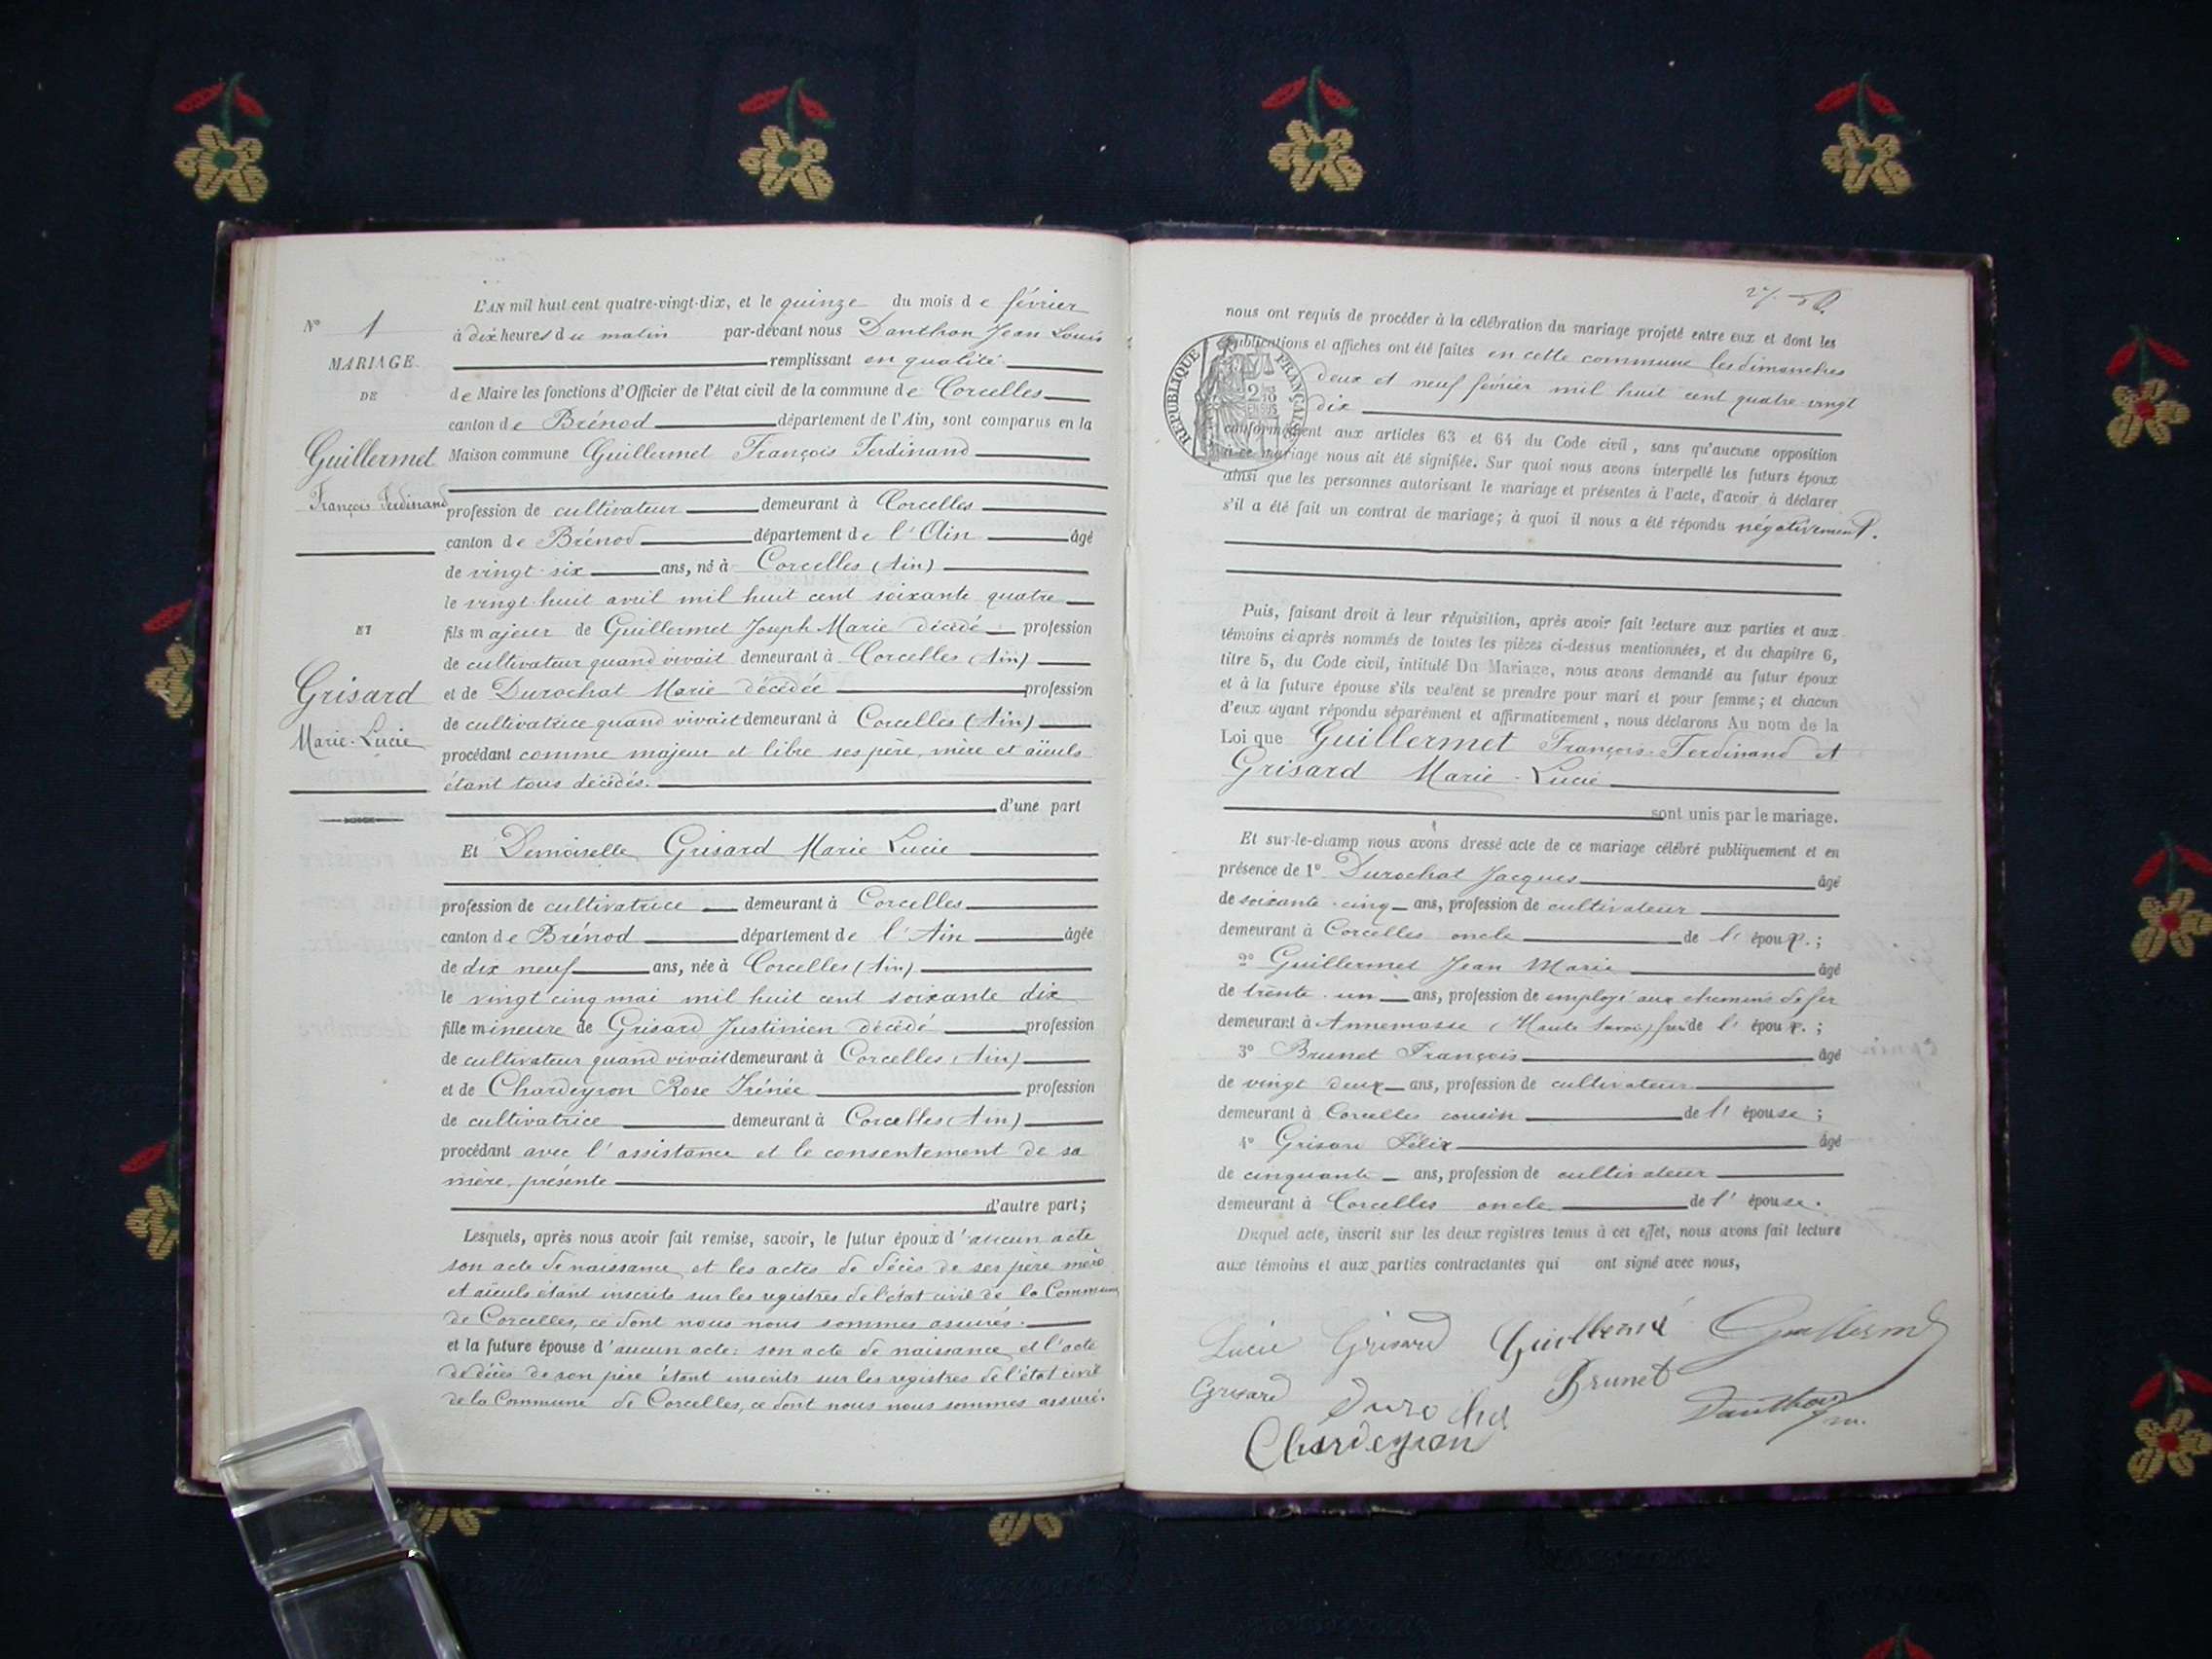 L'AN mil huit cent quatre-vingt-dix, et le quinze du mois de février
N° 1
à dix heures du matin par-devant nous Danthon Jean Louis
MARIAGE
remplissant en qualité
DE
de Maire les fonctions d'Officier de l'état civil de la commune de Corcelles
canton de Brénod département de l'Ain, sont comparus en la
Guillermet
Maison commune Guillermet François Ferdinand
François Ferdinand
profession de cultivateur demeurant à Corcelles
canton de Brénod département de l'Ain âgé
de vingt-six ans, né à Corcelles (Ain)
le vingt-huit avril mil huit cent soixante quatre
ET
fils majeur de Guillermet Joseph Marie décédé profession
de cultivateur quand vivait demeurant à Corcelles (Ain)
Grisard
et de Durochat Marie décédée profession
Marie-Lucie
de cultivatrice quand vivait demeurant à Corcelles (Ain)
procédant comme majeur et libre ses père, mère et aïeuls
étant tous décédés.
d'une part
Et Demoiselle Grisard Marie Lucie
profession de cultivatrice demeurant à Corcelles
canton de Brénod département de l'Ain âgée
de dix neuf ans, née à Corcelles (Ain)
le vingt cinq mai mil huit cent soixante dix
fille mineure de Grisard Justinien décédé profession
de cultivateur quand vivait demeurant à Corcelles (Ain)
et de Chardeyron Rose Irénée profession
de cultivatrice demeurant à Corcelles (Ain)
procédant avec l'assistance et le consentement de sa
mère, présente
d'autre part;
Lesquels, après nous avoir fait remise, savoir, le futur époux d'aucun acte
son acte de naissance et les actes de décès de ses père mère
et aïeuls étant inscrits sur les registres de l'état civil de la Commune
de Corcelles, ce dont nous nous sommes assurés.
et la future épouse d'aucun acte: son acte de naissance et l'acte
de décès de son père étant inscrits sur les registres de l'état civil
de la Commune de Corcelles, ce dont nous nous sommes assuré.
27.
nous ont requis de procéder à la célébration du mariage projeté entre eux et dont les
publications et affiches ont été faites en cette commune les dimanches
deux et neuf février mil huit cent quatre-vingt
dix
RÉPUBLIQUE FRANÇAISE
conformément aux articles 63 et 64 du Code civil, sans qu'aucune opposition
à ce mariage nous ait été signifiée. Sur quoi nous avons interpellé les futurs époux
ainsi que les personnes autorisant le mariage et présentes à l'acte, d'avoir à déclarer
s'il a été fait un contrat de mariage; à quoi il nous a été répondu négativement.
Puis, faisant droit à leur réquisition, après avoir fait lecture aux parties et aux
témoins ci-après nommés de toutes les pièces ci-dessus mentionnées, et du chapitre 6,
titre 5, du Code civil, intitulé Du Mariage, nous avons demandé au futur époux
et à la future épouse s'ils veulent se prendre pour mari et pour femme; et chacun
d'eux ayant répondu séparément et affirmativement, nous déclarons Au nom de la
Loi que Guillermet François-Ferdinand et
Grisard Marie-Lucie
sont unis par le mariage.
Et sur-le-champ nous avons dressé acte de ce mariage célébré publiquement et en
présence de 1° Durochat Jacques âgé
de soixante-cinq ans, profession de cultivateur
demeurant à Corcelles oncle de l'époux.;
2° Guillermet Jean Marie âgé
de trente-un ans, profession de employé aux chemins de fer
demeurant à Annemasse (Haute Savoie) frère de l'époux.;
3° Brunet François âgé
de vingt deux ans, profession de cultivateur
demeurant à Corcelles cousin de l'épouse;
4° Grisard Félix âgé
de cinquante ans, profession de cultivateur
demeurant à Corcelles oncle de l'épouse.
Duquel acte, inscrit sur les deux registres tenus à cet effet, nous avons fait lecture
aux témoins et aux parties contractantes qui ont signé avec nous,
Lucie Grisard Guillermet Guillermet
Grisard Durochat Brunet Danthon
Chardeyron m.